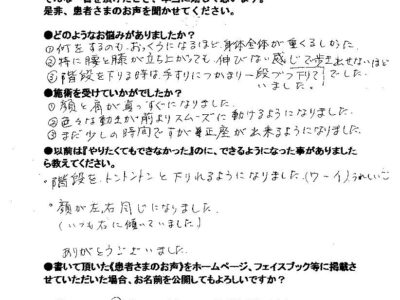 是非、患者さまのお声を聞かせてください。
●どのようなお悩みがありましたか?
①何をするのもおっくうになるほど、身体全体が重くるしかった。
②特に腰と膝が立ち上がっても、伸びない感じで歩き出せないほど
でした。
③階段を下りる時は手すりにつかまり一段づつ下りて
いました。
●施術を受けていかがでしたか?
①顔と肩が真っすぐになりました。
②色々な動きが前よりスムーズに動けるようになりました。
③まだ少しの時間ですが正座が出来るようになりました。
●以前は『やりたくてもできなかった』のに、できるようになった事がありました
ら教えてください。
・階段を、トントントンと下りれるようになりました。(ワーイ)うれしい
・顔が左右同じになりました。
(いつも右に傾いていました)
ありがとうございました。
●書いて頂いた《患者さまのお声》をホームページ、フェイスブック等に掲載さ
せていただいた場合、お名前を公開してもよろしいですか?